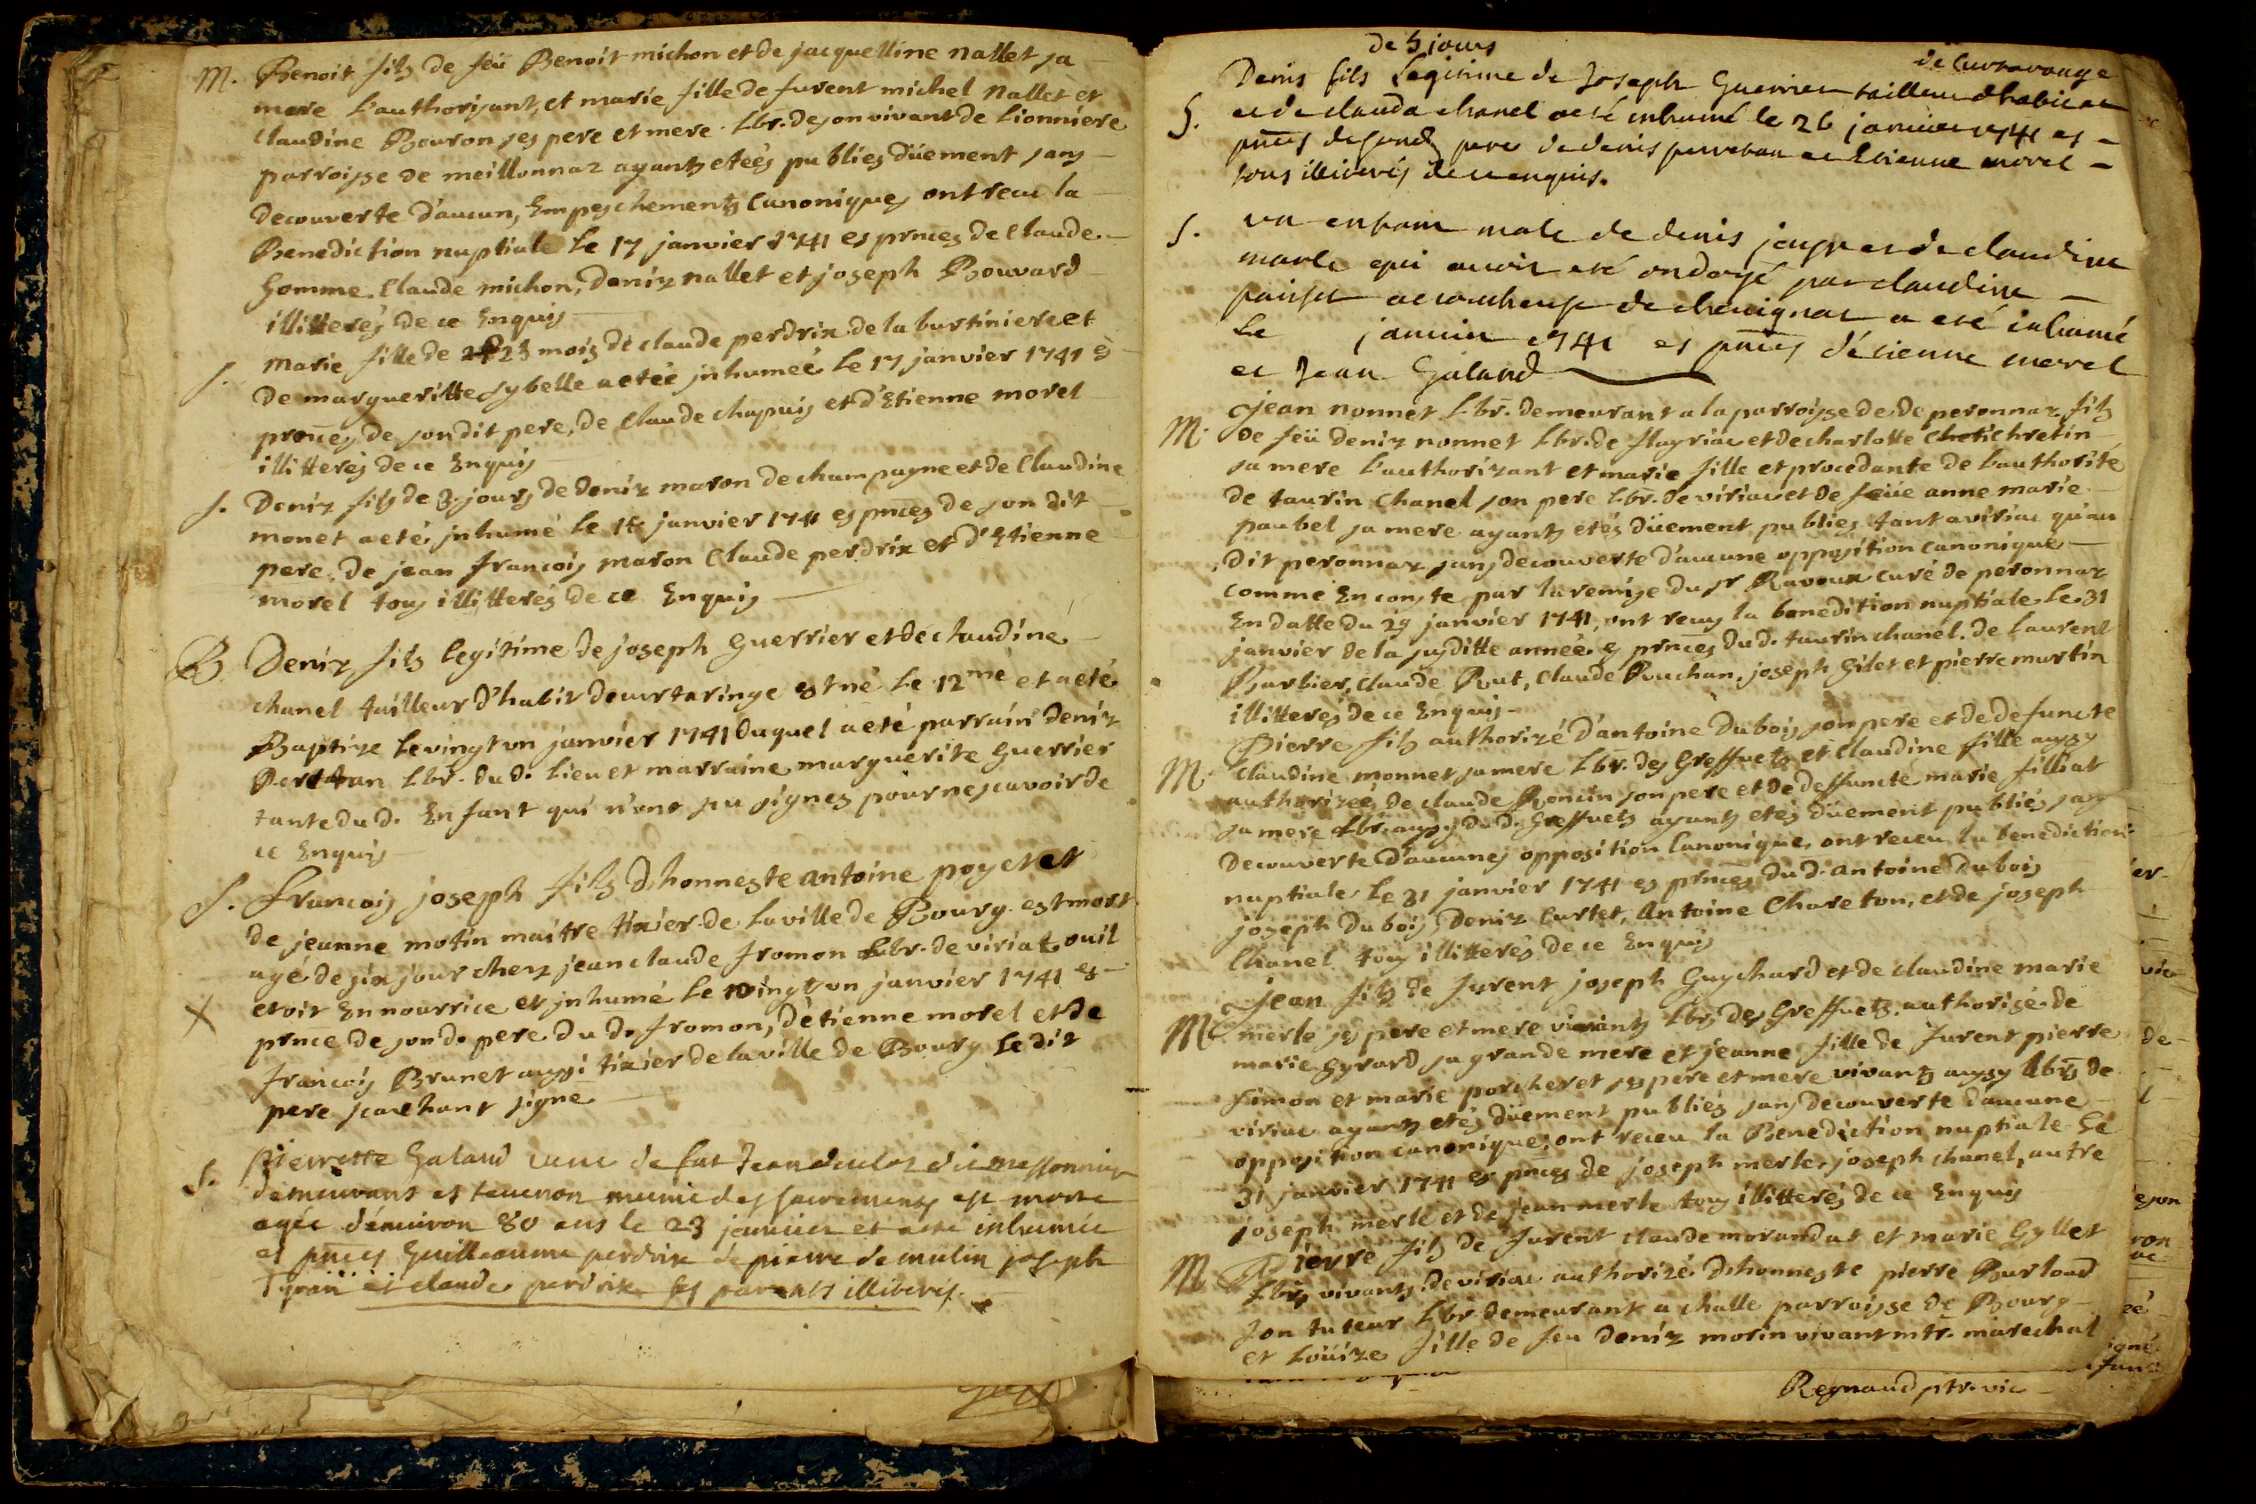 M. Benoit filz de feü Benoit michon et de jacquelline nallet sa
mere L'authorisant, et marie fille de furent michel Nallet et
claudine Bouron ses pere et mere Lbr. de son vivant de Lionniere
parroisse de meillonnaz ayants eteés publies düement sans
decouverte d'aucun, Empeschements Canoniques ont receu la
Benediction nuptiale Le 17 janvier 1741 es prnces de Claude
homme. Claude michon, Deniz nallet et joseph Bouvard
illitterés de ce Enquis
S. Marie fille de 23 mois de claude perdrix de la burtiniere et
de margueritte sybelle a etée jnhumeé Le 17 janvier 1741 e
prnces de son dit pere, de Claude chapuis et d'Etienne morel
illitterés de ce Enquis
S. Deniz filz de 3 jours de Deniz maron de champagne et de Claudine
monet a eté jnhumé Le janvier 1741 es prnces de son dit
pere. De jean francois maron Claude perdrix et d'Etienne
morel tous illitterés de ce Enquis
B Deniz filz legitime de joseph Guerrier et de claudine
chanel tailleur d'habit de curtaringe est né Le 12me et a eté
Baptize Levingt vn janvier 1741 duquel a eté parrain deniz
Lbr. du d. Lieu et marraine marguerite Guerrier
tante du d. Enfant qui n'ont su signes pour ne scavoir de
ce Enquis
S. Francois joseph filz d'honneste antoine poyet et
de jeanne motin maitre tixier de la ville de Bourg est mort
agé de six jour chez jean claude fromon Lbr. de viriat ouil
X etoit En nourrice et jnhumé Le vingt vn janvier 1741 es
prnce de son d. pere. Du d. fromon, d'etienne morel et de
francois Brunet aussi tixier de la ville de Bourg Le dit
pere scachant signe
S. pierrette Galand veuve de fut Jean duclos dit
demeurant es teuenon munie des sacrements est morte
agée d'enuiron 80 ans le 23 januier et a eté inhumée
es pnces Guilleaume perdrix de pierre de mulin joseph
et claude perdrix ses parents illiterés.
de 5 jours
de Curtarange
Denis fils Legitime de Joseph Guerrier tailleur d'habit et
S. et de clauda chanel a eté inhumé le 26 januier 1741 es
pnces de son d. pere de denis et Etienne morel
tous illiterés de ce enquis.
S. vn enfant male de denis et de claudine
marle qui auoit eté ondoyé par claudine
accoucheuse de a eté inhumé
Le januier 1741 es pnces d'étienne morel
et Jean Galand
M. Jean nonnet Lbr. demeurant a la parroisse de de peronnaz filz
de feü deniz nonnet Lbr. de flayriac et de charlotte chretin
sa mere L'authorizant et marie fille et procedante de L'authorité
de taurin Chanel son pere Lbr. de viriac et de feüe anne marie
paubel sa mere ayants étés düement publies tant a viriac qu'au
dit peronnaz sans decouverte d'aucune opposition canonique
comme En conste par la remise du sr Ravoux curé de peronnaz
En datte du 29 janvier 1741, ont receu la benedition nuptiale Le 31
janvier de la susditte anneé es prnces du d. taurin chanel. de Laurent
Barbier, claude Rut, claude Bouchan, joseph Gilet et pierre martin
illitterés de ce Enquis
M. Pierre filz authorizé d'antoine Dubois son pere et de defuncte
claudine monnet sa mere Lbr. des Greffets et claudine fille aussy
authorizeé de claude Roncin son pere et de deffuncte marie filliat
sa mere Lbr. aussy du d. Greffuets ayants etés düement publiés sans
decouverte d'aucunes opposition Canonique, ont receu la benediction
nuptiale Le 31 janvier 1741 es prnces du d. antoine Dubois
joseph Dubois, Deniz Curtet, Antoine Chareton, et de joseph
Chanel tous illitterés de ce Enquis
M Jean filz de furent joseph Guychard et de claudine marie
merle ses pere et mere vivants Lbrs des Greffuets. authorisé de
marie Gyrard sa grande mere et jeanne fille de furent pierre
Simon et marie porcheret ses pere et mere vivants aussy Lbrs de
viriac ayants etés düement publiés sans decouverte d'aucune
opposition canonique, ont receu la Benediction nuptiale Le
31 janvier 1741 es prnces de joseph merle, joseph chanel, autre
joseph merle et de jean merle tous illitterés de ce Enquis
M Pierre filz de furent claude morandat et marie Gyllet
Lbrs vivants de viriac authorizé d'honneste pierre Burtoud
son tuteur Lbr demeurant a challe parroisse de Bourg
et Loüize fille de feu deniz morin vivant mtr. marechal
Regnaud ptr. vic